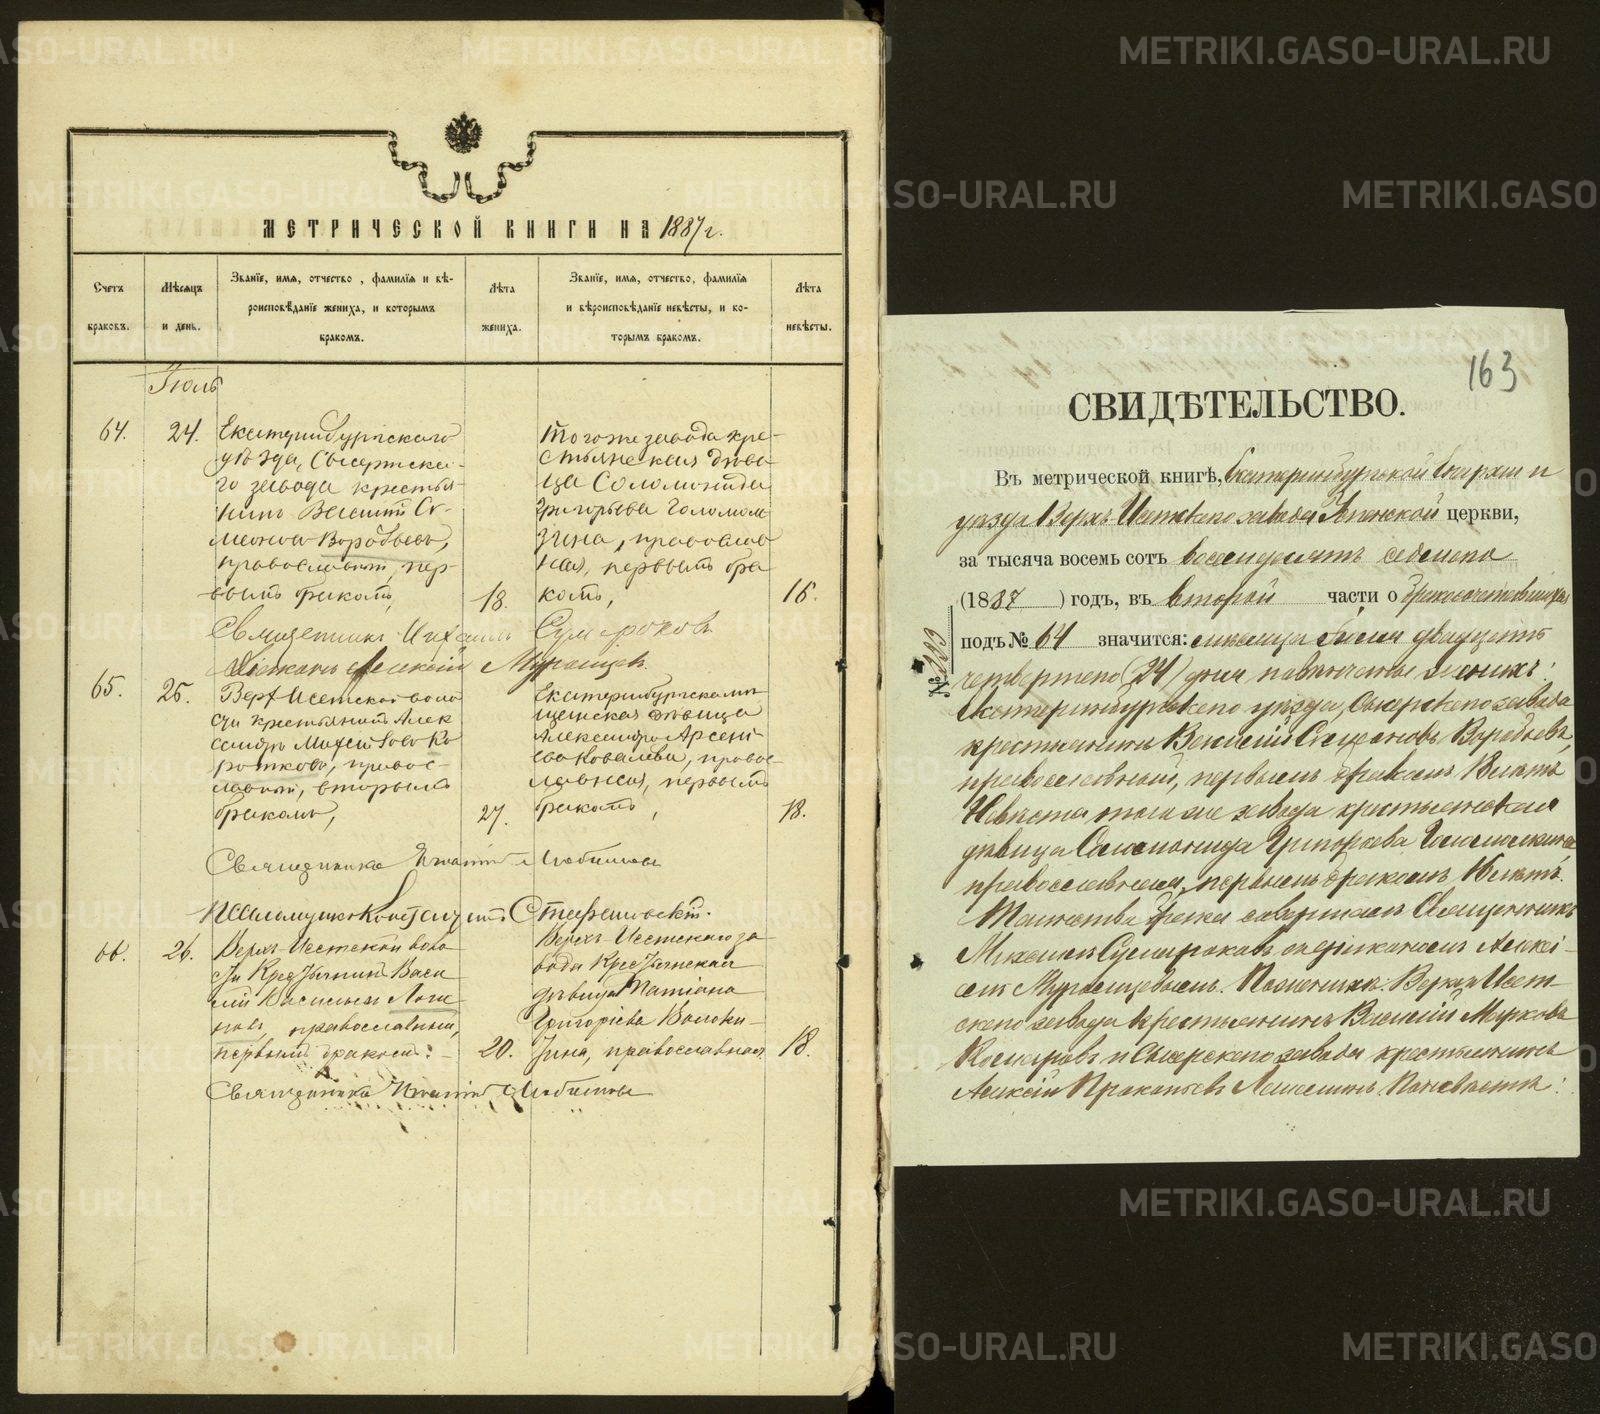 МЕТРИЧЕСКОЙ КНИГИ НА 1887 г.
Счетъ браковъ.
Мѣсяцъ и день.
Званіе, имя, отчество, фамилія и вѣ-
роисповѣданіе жениха, и которымъ
бракомъ.
Лѣта жениха.
Званіе, имя, отчество, фамилія
и вѣроисповѣданіе невѣсты, и ко-
торымъ бракомъ.
Лѣта невѣсты.
Іюль
64.
24.
Екатеринбургскаго
уѣзда, Сысертска-
го завода крестья-
нинъ Василій Се-
меновъ Воробьевъ,
православный, пер-
вымъ бракомъ,
18.
того же завода кре-
стьянская дѣви-
ца Соломонида
Григорьева Голомол-
зина, православ
ная, первымъ бра
комъ,
16.
Священникъ Михаилъ Сумароковъ
Діаконъ Алексій Мурашцев.
65.
25.
Верх Исетской воло
сти крестьянинъ Алек
сандръ Матѳіевъ Ко
ротковъ, правос-
лавный, вторымъ
бракомъ,
27.
Екатеринбургская мѣ
щанская дѣвица
Александра Арсені-
ева Ковалева, правос
лавная, первымъ
бракомъ,
18.
Священникъ Игнатій Любимовъ
Псаломщикъ Константинъ Стефановскій.
66.
26.
Верхъ-Исетской воло
сти Крестьянинъ Васи
лій Васильевъ Логи-
новъ, православный,
первымъ бракомъ:-
20.
Верхъ-Исетскаго за
вода Крестьянская
дѣвица Татіана
Григоріева Волоки-
тина, православная
18.
Священникъ Игнатій Любимовъ
163
СВИДѢТЕЛЬСТВО.
Въ метрической книгѣ, Екатеринбургской Епархіи и
уѣзда Верхъ Исетскаго завода церкви,
за тысяча восемь сотъ восемьдесятъ седьмой
(1887) годъ, въ второй части о бракосочетавшихся
подъ № 64 значится: мѣсяца Іюля двадцать
четвертаго (24) дня повѣнчаны женихъ:
Екатеринбургскаго уѣзда, Сысертскаго завода
крестьянинъ Василій Семеновъ Воробьевъ,
православный, первымъ бракомъ
Невѣста того же завода крестьянская
дѣвица Соломонида Григорьева Голомолзина
православная, первымъ бракомъ
Таинство брака совершалъ Священникъ
Михаилъ Сумароковъ съ діакономъ Алексі-
емъ Мурашцевымъ. Верхъ Исет-
скаго завода крестьянинъ Василій Марковъ
и Сысертскаго завода крестьянинъ
Алексій Прокопьевъ По невѣстѣ:
METRIKI.GASO-URAL.RU